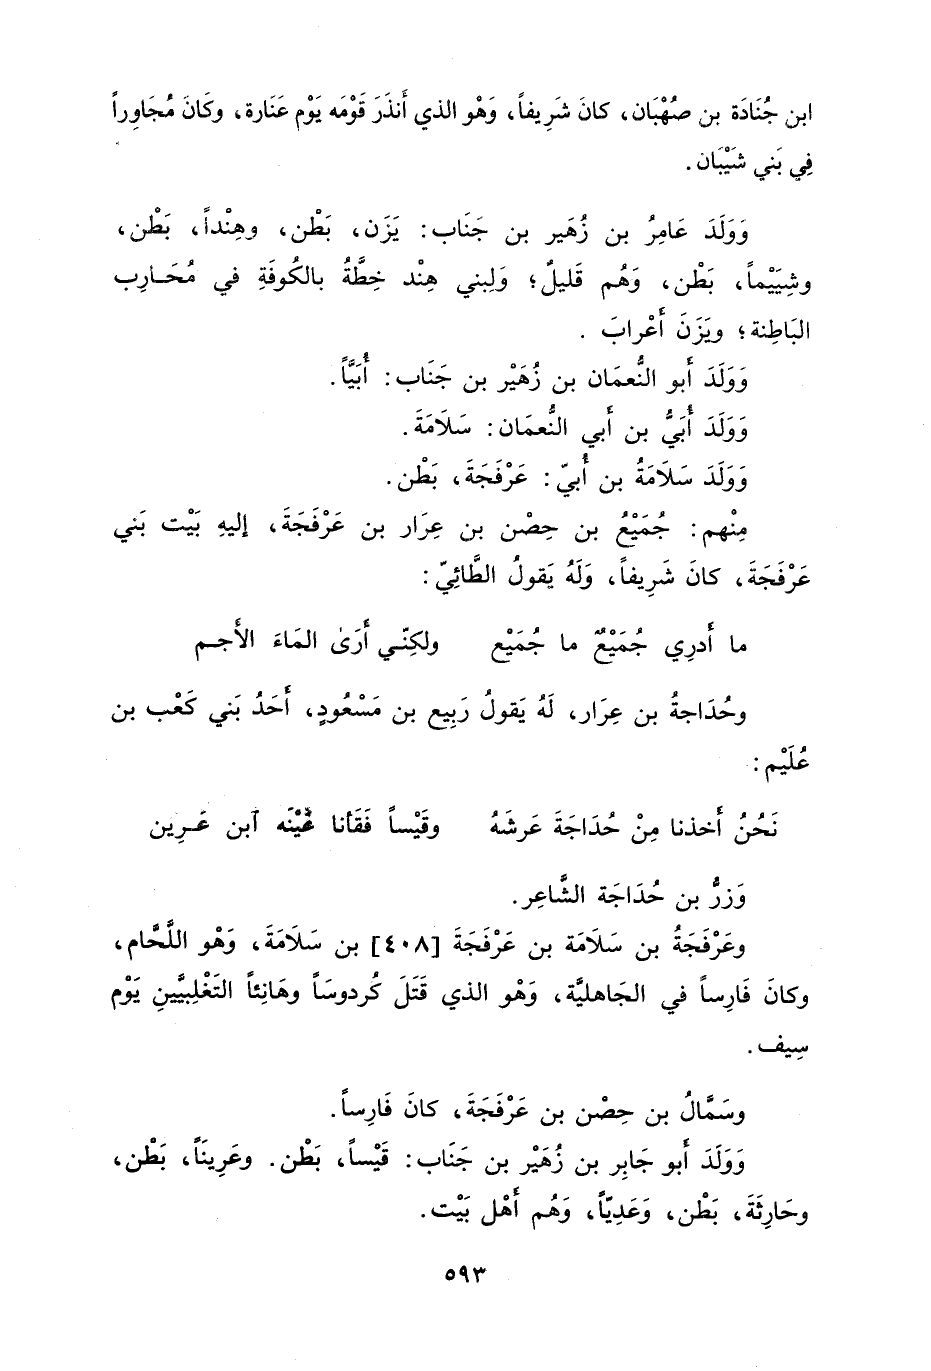 ابن جُنَادَة بن صُهْبَان، كانَ شَرِيفاً، وَهْو الذي أَنذَرَ قَوْمَه يَوْم عَنَارة، وكَانَ مُجَاوِراً
فِي بَني شَيْبَان.
وَوَلَدَ عَامِرُ بن زُهَير بن جَنَاب: يَزَن، بَطْن، وهِنْداً، بَطْن،
وشِيَيْماً، بَطْن، وَهُم قَليلٌ؛ وَلِبني هِنْد خِطَّةُ بالكُوفَةِ في مُحَـارِب
البَاطِنة؛ ويَزَنَ أَعْرابَ .
وَوَلَدَ أَبو النُّعمَان بن زُهَيْر بن جَنَاب: أُبَيَّاً.
وَوَلَدَ أُبَيُّ بن أَبي النُّعمَان: سَلَامَةَ.
وَوَلَدَ سَلَامَةُ بن أُبيّ: عَرْفَجَةَ، بَطْن.
مِنْهم: جُمَيْعُ بن حِصْن بن عِرَار بن عَرْفَجَةَ، إليهِ بَيْت بَني
عَرْفَجَةَ، كانَ شَرِيفاً، وَلَهُ يَقولُ الطَّائِيّ:
ما أَدرِي جُمَيْعٌ ما جُمَيْع ولكِنّـي أَرَىٰ المَاءَ الأَجـم
وحُدَاجةُ بن عِرَار، لَهُ يَقولُ رَبِيع بن مَسْعُودٍ، أَحَدُ بَني كَعْب بن
عُلَيْم:
نَحْنُ أَخذنا مِنْ حُدَاجَةَ عَرشَهُ وقَيْساً فَقَأنا عَيْنَه آبن عَـرِين
وَزرُّ بن حُدَاجَة الشَّاعِر.
وعَرْفَجَةُ بن سَلَامَة بن عَرْفَجَةَ [٤٠٨] بن سَلَامَةَ، وَهْو اللَّحَّام،
وكانَ فَارِساً في الجَاهليَّة، وَهْو الذي قَتَلَ كُردوسَاً وهَانِئاً التَغْلِبيَّينِ يَوْم
سِيف.
وسَمَّالُ بن حِصْن بن عَرْفَجَةَ، كانَ فَارِساً.
وَوَلَدَ أَبو جَابِر بن زُهَيْر بن جَنَاب: قَيْساً، بَطْن. وعَرِينَاً، بَطْن،
وحَارِثَةَ، بَطْن، وَعَدِيّاً، وَهُم أَهْل بَيْت.
٥٩٣